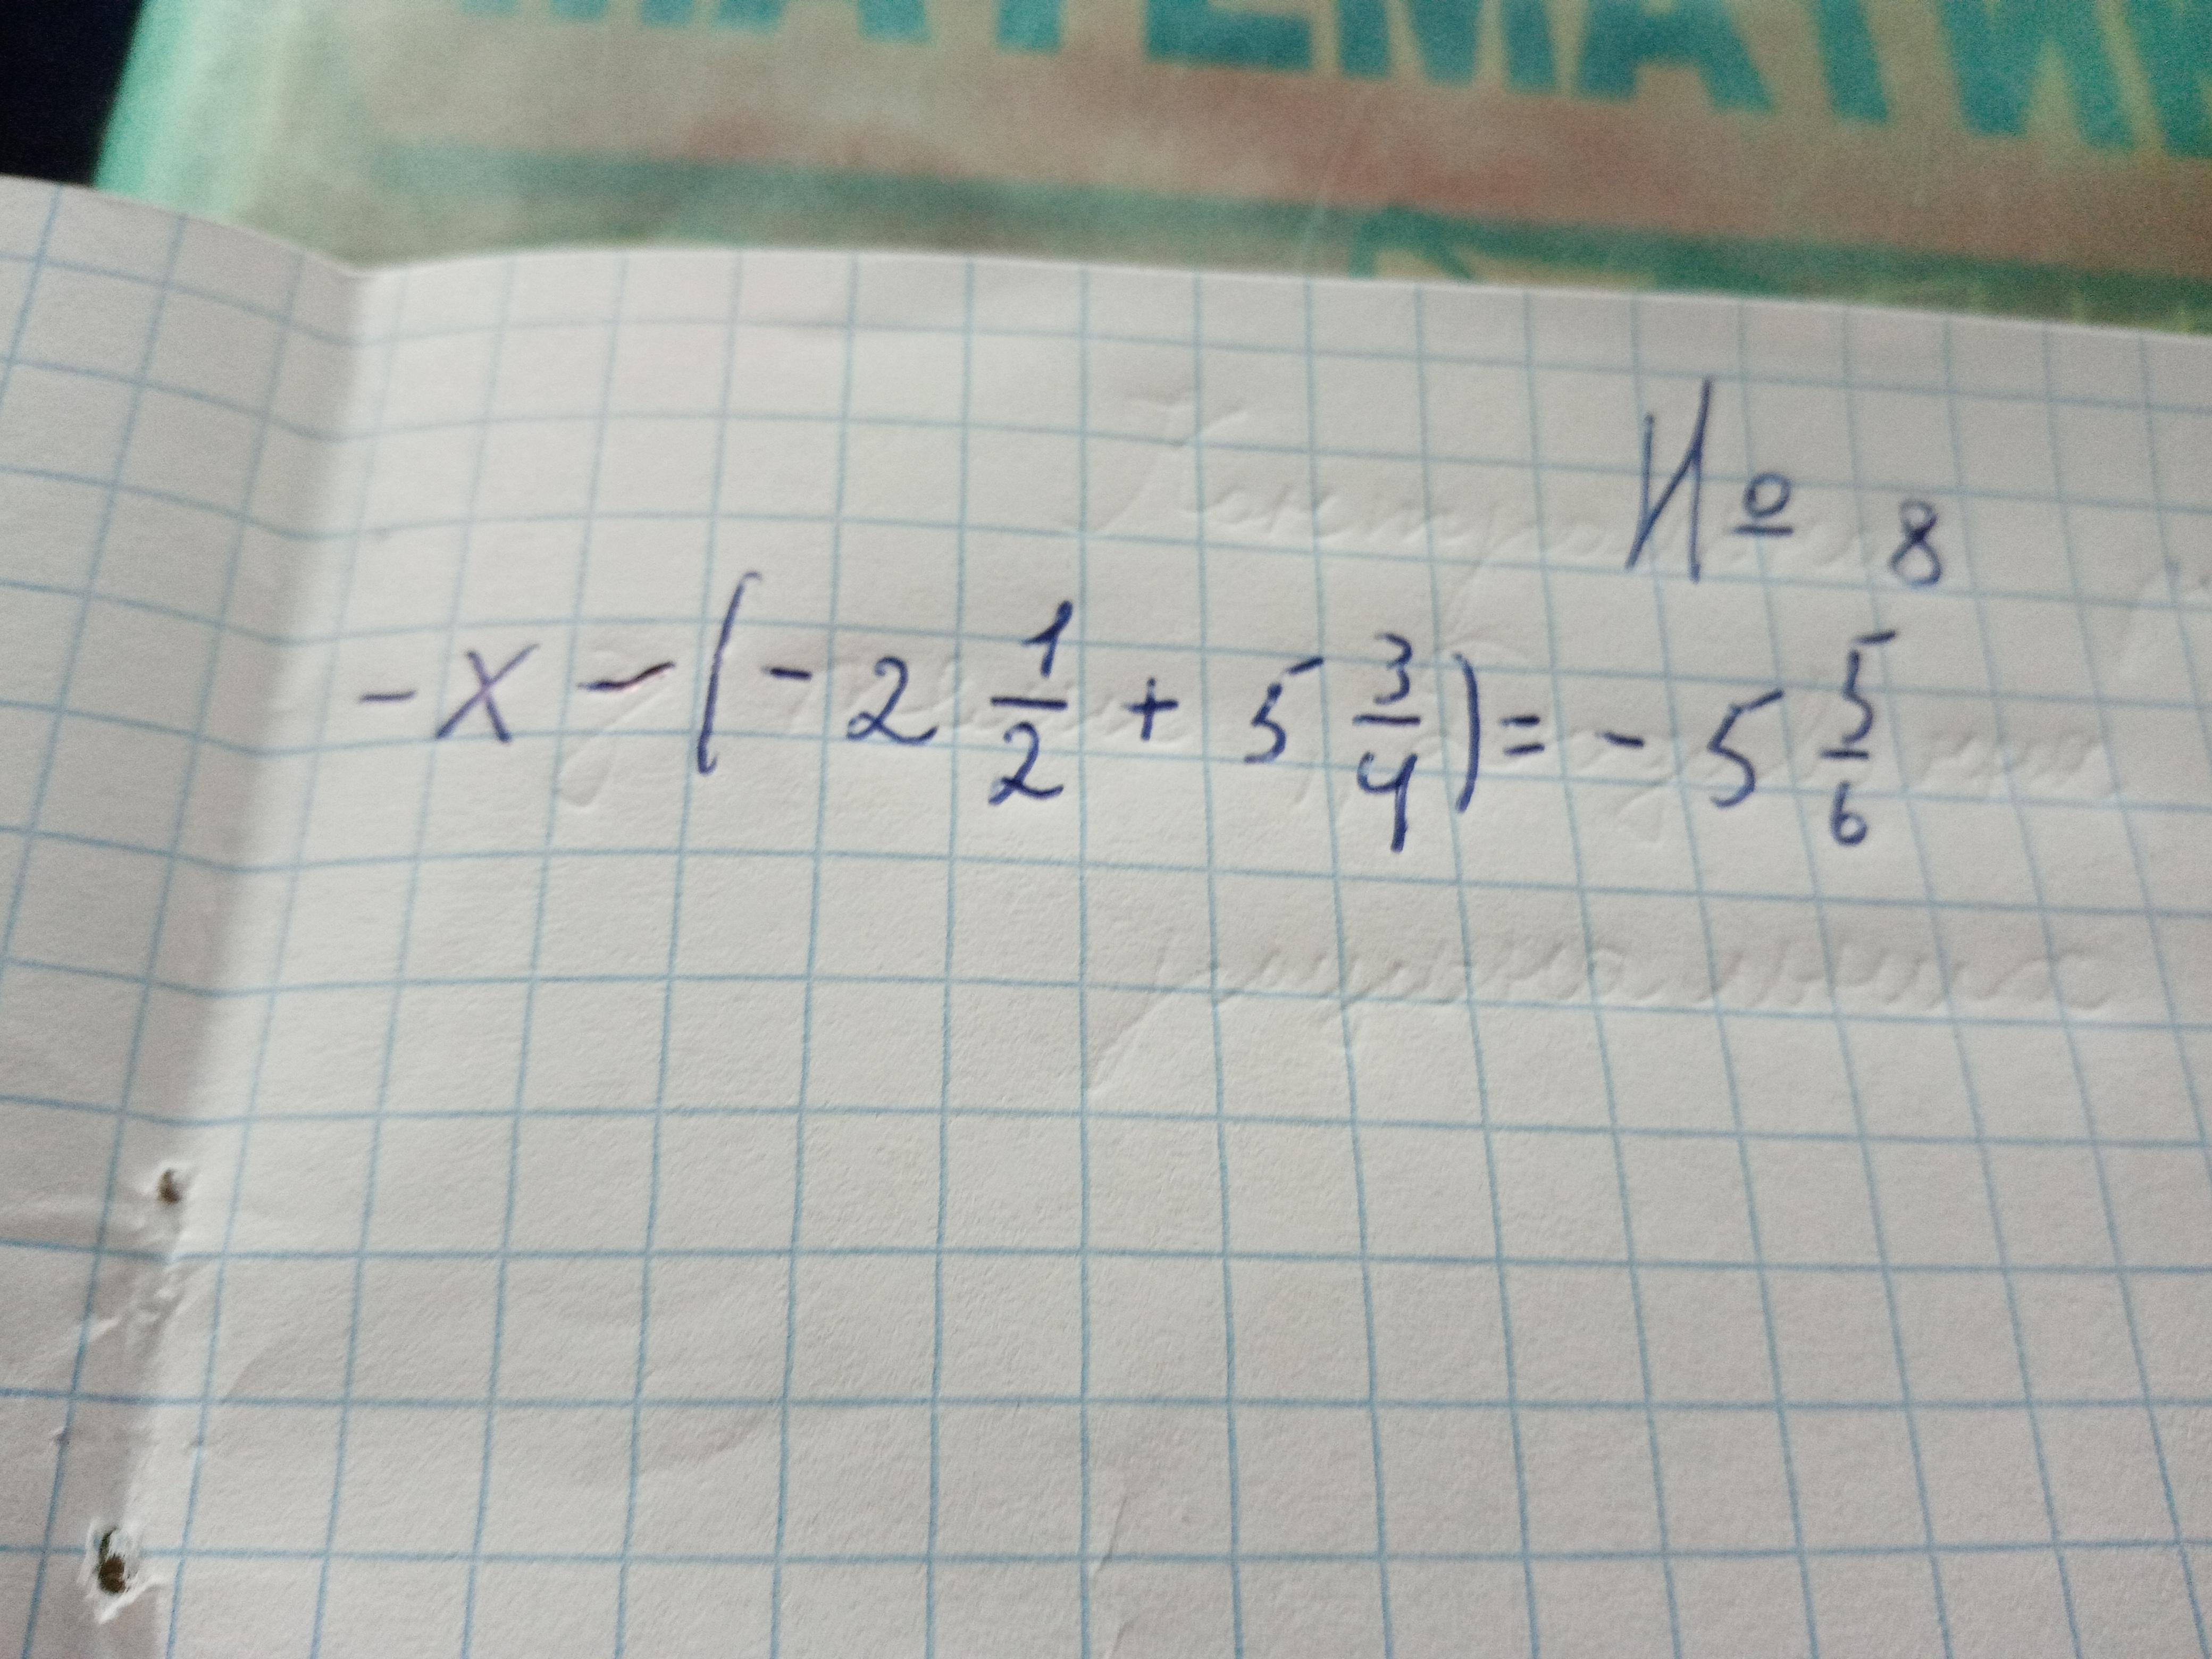 МАТЕМАТИ
№ 8
-x - (- 2 1/2 + 5 3/4) = - 5 5/6